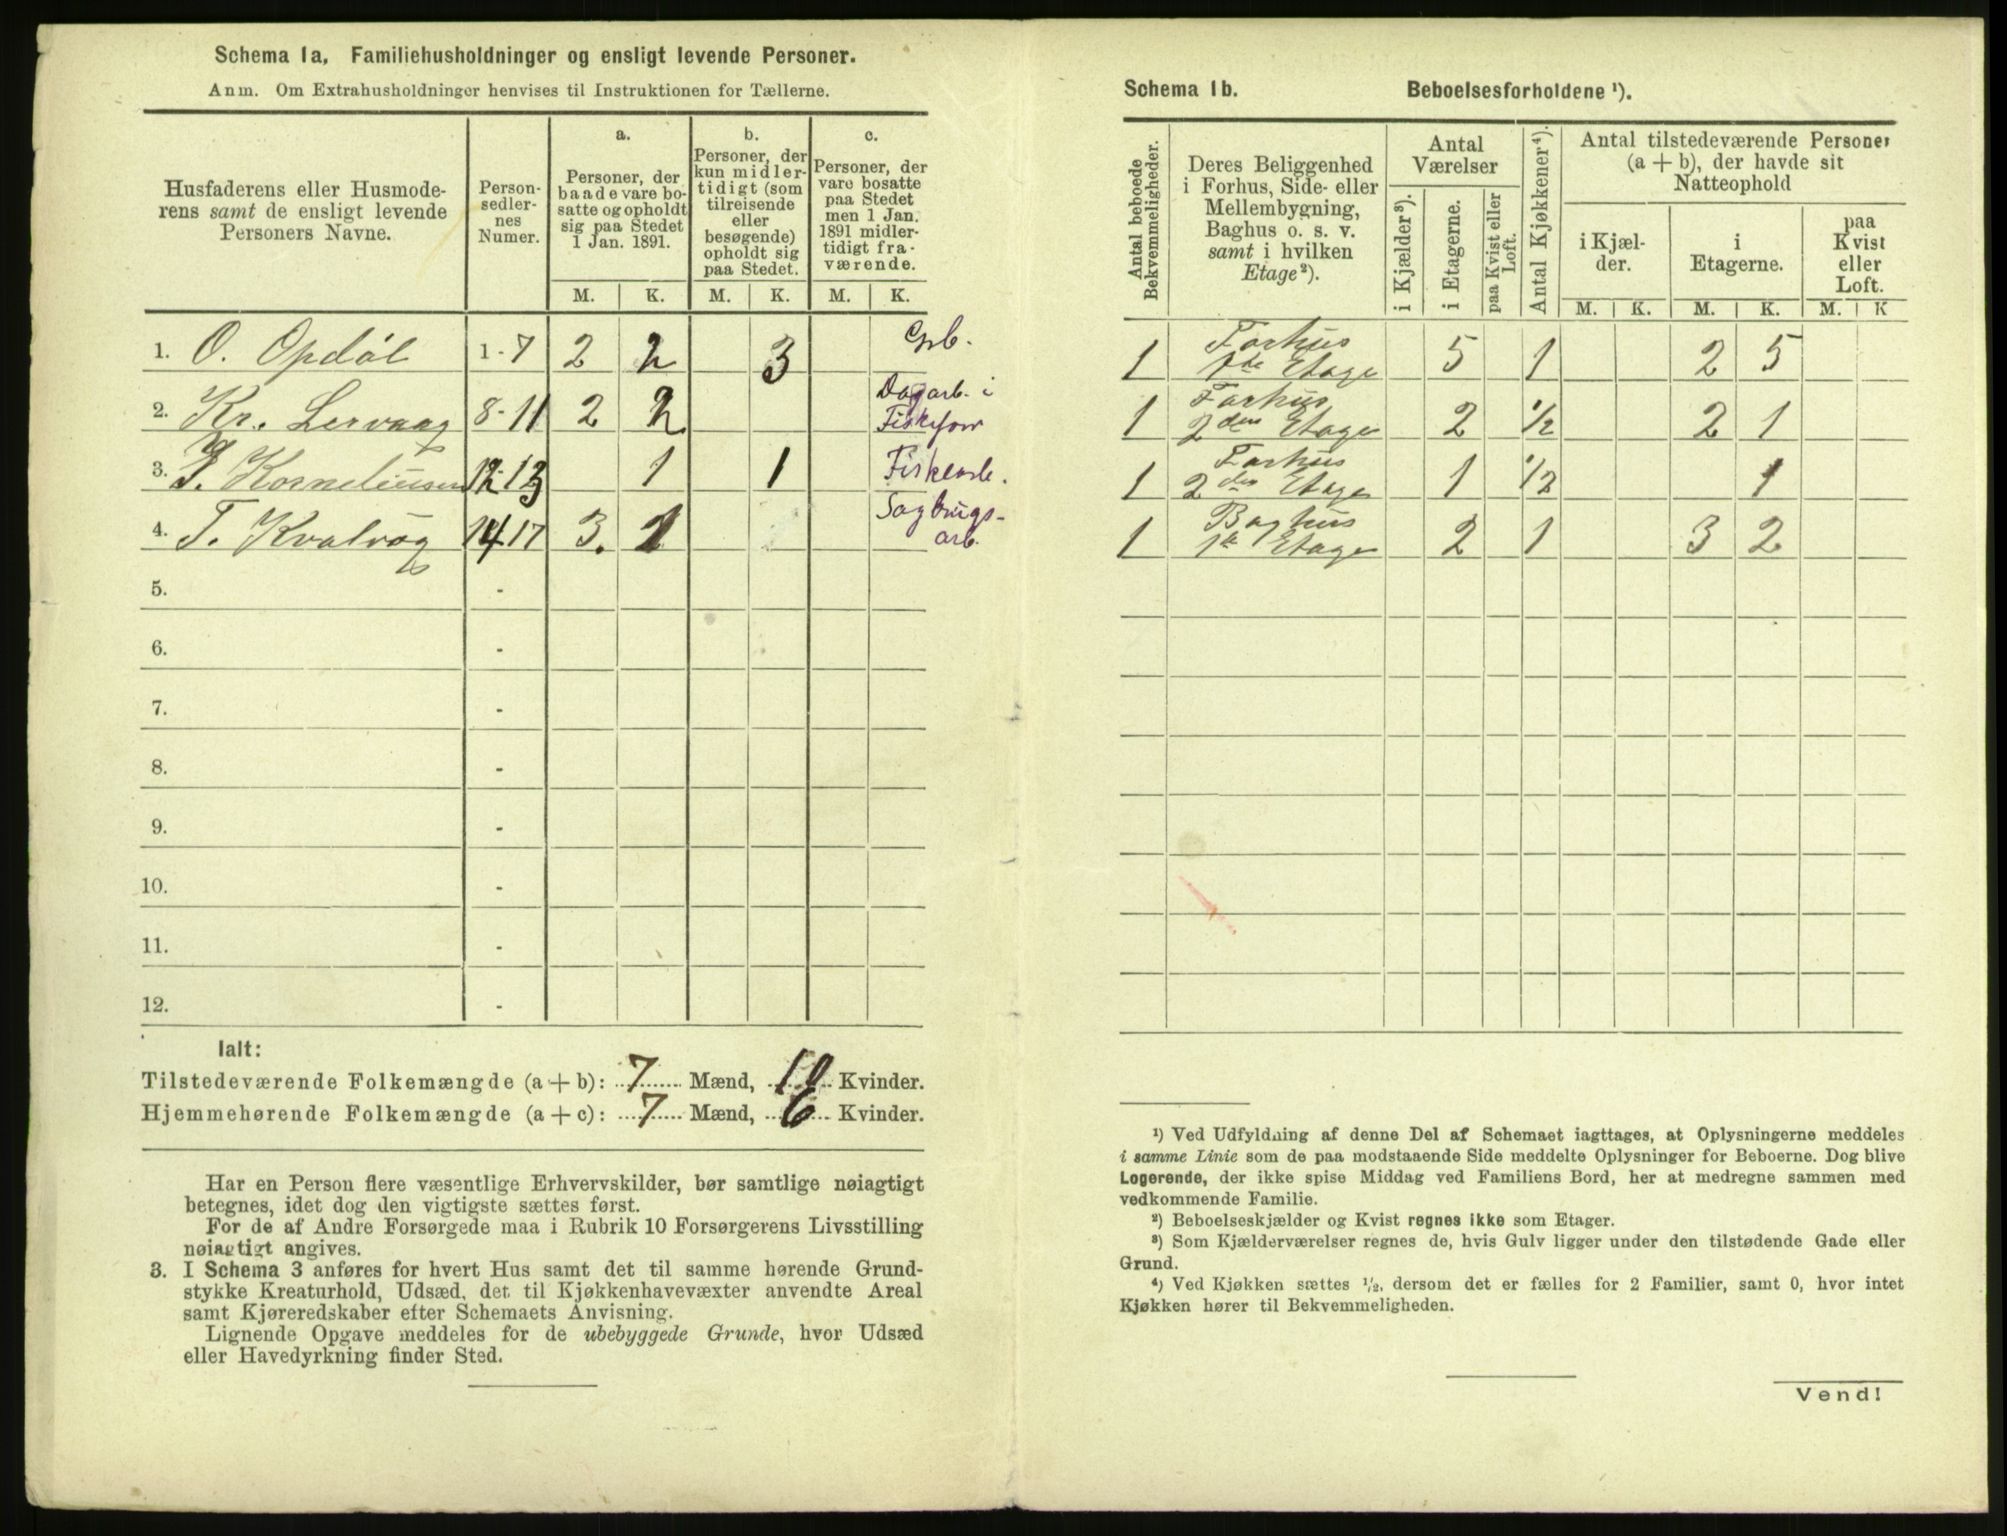 Schema 1a, Familiehusholdninger og ensligt levende Personer.
Anm. Om Extrahusholdninger henvises til Instruktionen for Tællerne.
Husfaderens eller Husmode-
rens samt de ensligt levende
Personers Navne.
Person-
sedler-
nes
Numer.
a.
Personer, der
baade vare bo-
satte og opholdt
sig paa Stedet
1 Jan. 1891.
b.
Personer, der
kun midler-
tidigt (som
tilreisende
eller
besøgende)
opholdt sig
paa Stedet.
c.
Personer, der
vare bosatte
paa Stedet
men 1 Jan.
1891 midler-
tidigt fra-
værende.
M. K. M. K. M. K.
1. O. Opdøl 1-7 2 2 3
2. Kr. Lervaag 8-11 2 2 Dagarb. i
3. Korneliussen 12-13 1 1
4. T. Kvalvög 14-17 3. 1 Sagbrugs-
arb.
5. -
6. -
7. -
8. -
9. -
10. -
11. -
12. -
Ialt:
Tilstedeværende Folkemængde (a + b): 7 Mænd, 10 Kvinder.
Hjemmehørende Folkemængde (a + c): 7 Mænd, 6 Kvinder.
Har en Person flere væsentlige Erhvervskilder, bør samtlige nøiagtigt
betegnes, idet dog den vigtigste sættes først.
For de af Andre Forsørgede maa i Rubrik 10 Forsørgerens Livsstilling
nøiagtigt angives.
3. I Schema 3 anføres for hvert Hus samt det til samme hørende Grund-
stykke Kreaturhold, Udsæd, det til Kjøkkenhavevæxter anvendte Areal
samt Kjøreredskaber efter Schemaets Anvisning.
Lignende Opgave meddeles for de ubebyggede Grunde, hvor Udsæd
eller Havedyrkning finder Sted.
Schema 1b. Beboelsesforholdene ¹).
Antal beboede
Bekvemmeligheder.
Deres Beliggenhed
i Forhus, Side- eller
Mellembygning,
Baghus o. s. v.
samt i hvilken
Etage²).
Antal
Værelser
i Kjælder³).
i Etagerne.
paa Kvist eller
Loft.
Antal Kjøkkener⁴).
Antal tilstedeværende Personer
(a + b), der havde sit
Natteophold
i Kjæl-
der.
i
Etagerne.
paa
Kvist
eller
Loft.
M. K. M. K. M. K
1 Forhus
1ste Etage 5 1 2 5
1 Forhus
2den Etage 2 1/2 2 1
1 Forhus
2den Etage 1 1/2 1
1 Baghus
1ste Etage 2 1 3 2
¹) Ved Udfyldning af denne Del af Schemaet iagttages, at Oplysningerne meddeles
i samme Linie som de paa modstaaende Side meddelte Oplysninger for Beboerne. Dog blive
Logerende, der ikke spise Middag ved Familiens Bord, her at medregne sammen med
vedkommende Familie.
²) Beboelseskjælder og Kvist regnes ikke som Etager.
³) Som Kjælderværelser regnes de, hvis Gulv ligger under den tilstødende Gade eller
Grund.
⁴) Ved Kjøkken sættes ½, dersom det er fælles for 2 Familier, samt 0, hvor intet
Kjøkken hører til Bekvemmeligheden.
Vend!